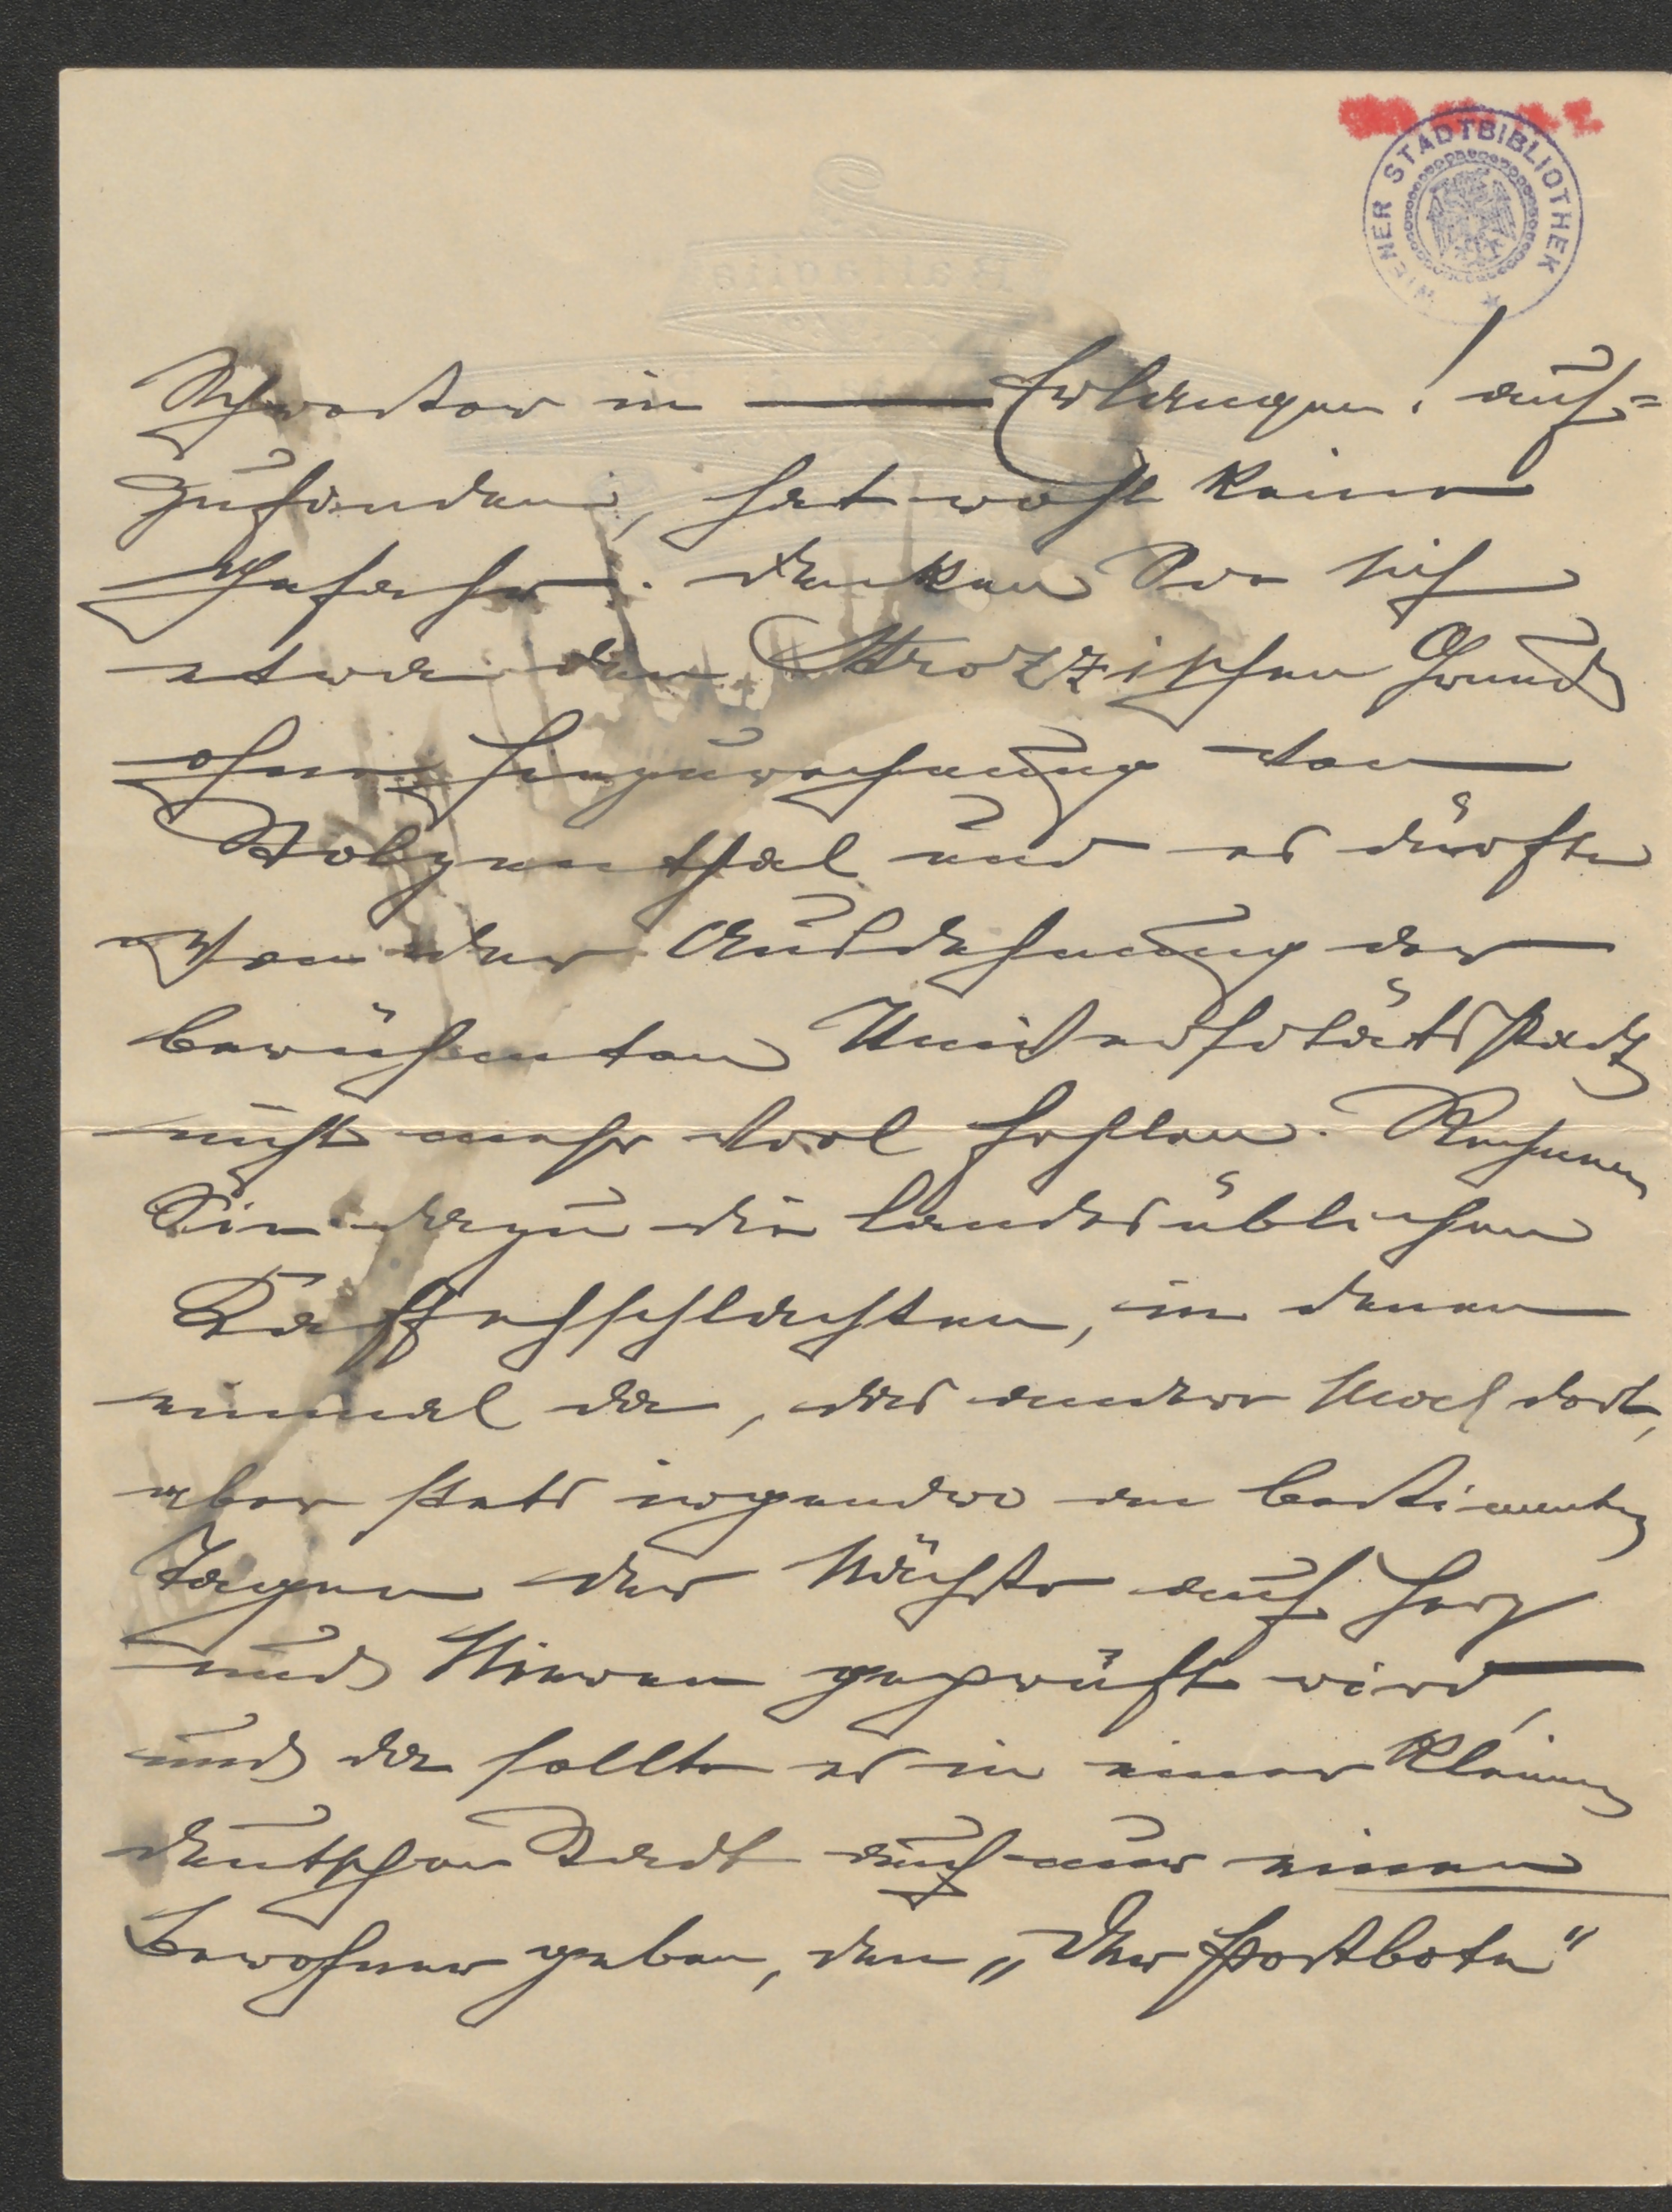 WIENER STADTBIBLIOTHEK
Schwester in — Erlangen! auf=
zufinden, hat wohl keine
Gefahr. Denken Sie sich
etwa den Strozzischen Grund
ohne Hinzurechnung von
und es dürfte
von der Ausdehnung der
berühmten Universitätsstadt
nicht mehr viel fehlen. Rechnen
Sie dazu die landesüblichen
Kaffehschlachten, in denen
einmal da, das andere Mal dort,
aber stets irgendwo an bestimmten
Tagen der Nächste auf Herz
und Nieren geprüft wird,
und da sollte es in einer kleinen
deutschen Stadt auch nur einen
Bewohner geben, den „Der Postbote"